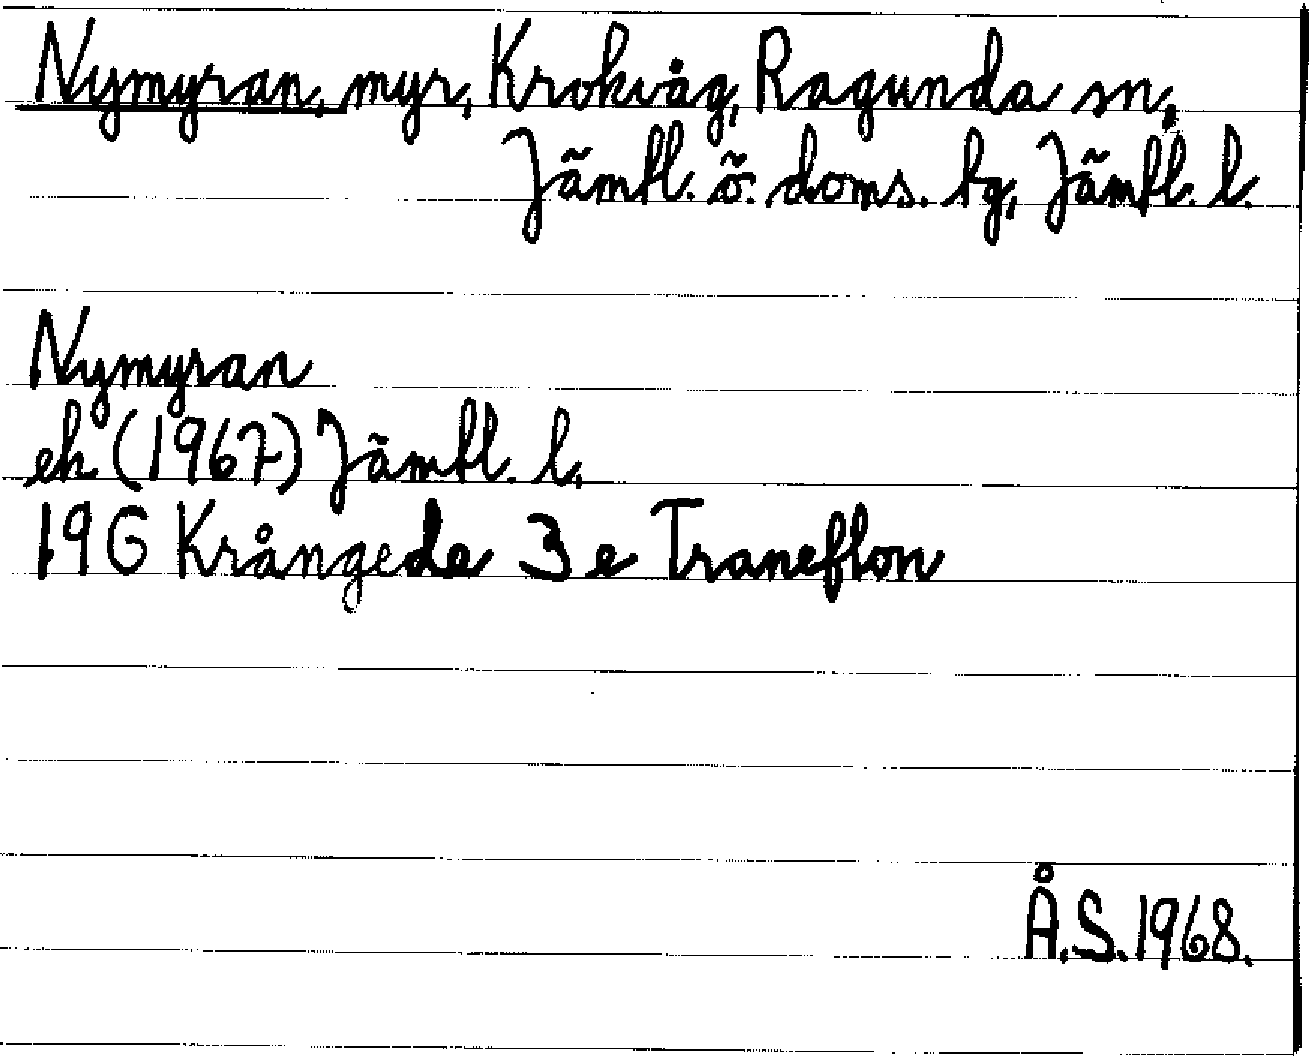 Nymyran, myr, Krokvåg, Ragunda sn,
Jämtl. ö. doms. tg, Jämtl. l.
Nymyran
ek (1967) Jämtl. l.
19G Krångede 3 e Traneflon
Å.S. 1968.